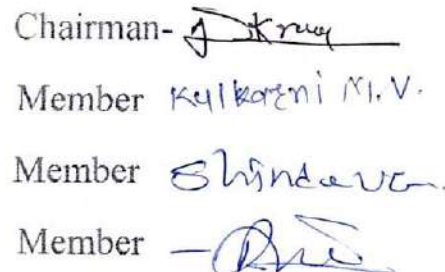 Chairman-
Member Kulkarni M.V.
Member Shinde V.G.
Member -